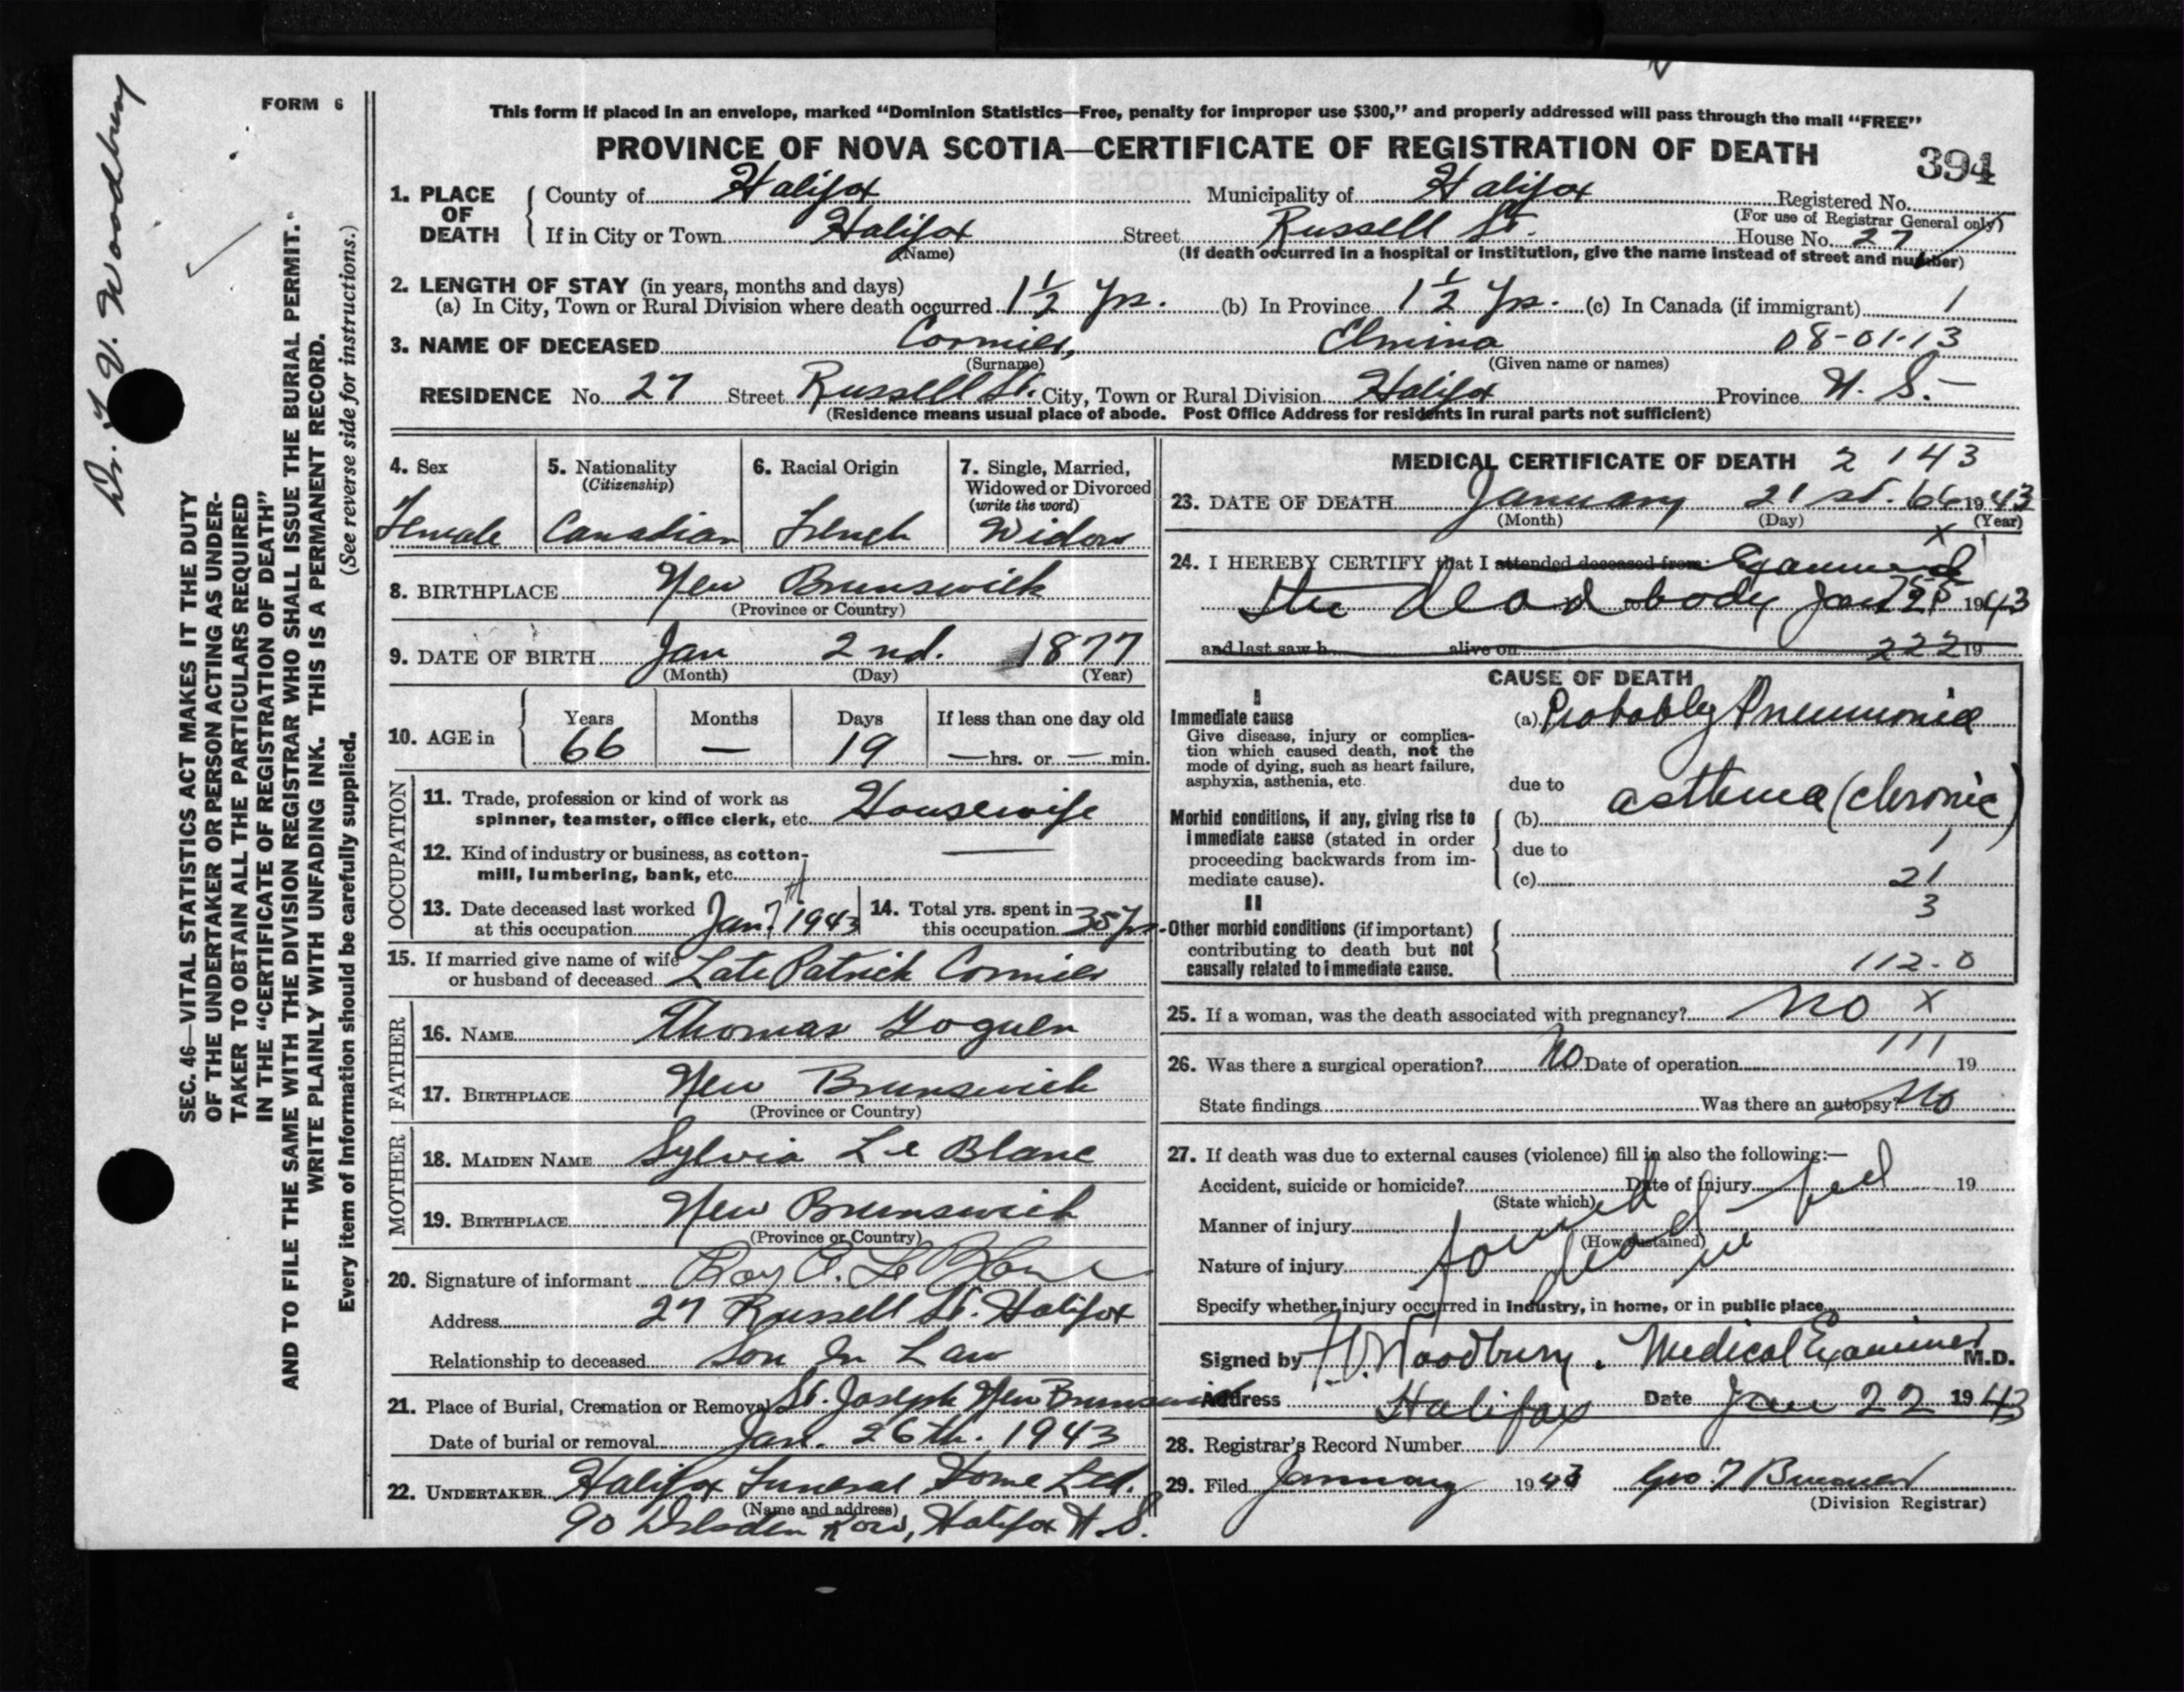 FORM 6
This form if placed in an envelope, marked “Dominion Statistics—Free, penalty for improper use $300,” and properly addressed will pass through the mail “FREE”
PROVINCE OF NOVA SCOTIA—CERTIFICATE OF REGISTRATION OF DEATH
394
1. PLACE OF DEATH
County of Halifax Municipality of Halifax Registered No.
(For use of Registrar General only)
If in City or Town Halifax Street Russell St. House No. 27
(Name) (If death occurred in a hospital or institution, give the name instead of street and number)
2. LENGTH OF STAY (in years, months and days)
(a) In City, Town or Rural Division where death occurred 1 1/2 Yrs. (b) In Province 1 1/2 Yrs. (c) In Canada (if immigrant) 1
3. NAME OF DECEASED Cormier, Elmina 08-01-13
(Surname) (Given name or names)
RESIDENCE No. 27 Street Russell St. City, Town or Rural Division Halifax Province N. S.
(Residence means usual place of abode. Post Office Address for residents in rural parts not sufficient)
4. Sex
Female
5. Nationality
(Citizenship)
Canadian
6. Racial Origin
French
7. Single, Married, Widowed or Divorced
(write the word)
Widow
8. BIRTHPLACE New Brunswick
(Province or Country)
9. DATE OF BIRTH Jan 2nd. 1877
(Month) (Day) (Year)
10. AGE in
Years Months Days If less than one day old
66 — 19 —hrs. or —min.
OCCUPATION
11. Trade, profession or kind of work as
spinner, teamster, office clerk, etc. Housewife
12. Kind of industry or business, as cotton-
mill, lumbering, bank, etc. —
13. Date deceased last worked
at this occupation Jan. 7th 1943
14. Total yrs. spent in
this occupation 35 Yrs.
15. If married give name of wife
or husband of deceased Late Patrick Cormier
FATHER
16. NAME Thomas Goguen
17. BIRTHPLACE New Brunswick
(Province or Country)
MOTHER
18. MAIDEN NAME Sylvia Le Blanc
19. BIRTHPLACE New Brunswick
(Province or Country)
20. Signature of informant Roy A. Le Blanc
Address 27 Russell St. Halifax
Relationship to deceased Son In Law
21. Place of Burial, Cremation or Removal St. Joseph New Brunswick
Date of burial or removal Jan. 26th. 1943
22. UNDERTAKER Halifax Funeral Home Ltd.
(Name and address)
90 Dresden Row, Halifax N. S.
MEDICAL CERTIFICATE OF DEATH 2 143
23. DATE OF DEATH January 21st. 66 1943
(Month) (Day) (Year)
x
24. I HEREBY CERTIFY that I attended deceased from: Examined
the dead body Jan 1943
and last saw h alive on 222 19
CAUSE OF DEATH
I
Immediate cause
Give disease, injury or complica-
tion which caused death, not the
mode of dying, such as heart failure,
asphyxia, asthenia, etc.
(a) Probably Pneumonia
due to asthma (chronic)
Morbid conditions, if any, giving rise to
immediate cause (stated in order
proceeding backwards from im-
mediate cause).
(b)
due to 1
(c) 21
3
II
Other morbid conditions (if important)
contributing to death but not
causally related to immediate cause.
112-0
25. If a woman, was the death associated with pregnancy? No x
26. Was there a surgical operation? No Date of operation 111 19
State findings Was there an autopsy? No
27. If death was due to external causes (violence) fill in also the following:—
Accident, suicide or homicide? Date of injury 19
(State which)
Manner of injury
(How sustained)
Nature of injury
found dead in bed
Specify whether injury occurred in industry, in home, or in public place
Signed by Woodbury. Medical Examiner M.D.
Address Halifax Date Jan 22 1943
28. Registrar's Record Number
29. Filed January 1943
(Division Registrar)
Woodbury
SEC. 46—VITAL STATISTICS ACT MAKES IT THE DUTY
OF THE UNDERTAKER OR PERSON ACTING AS UNDER-
TAKER TO OBTAIN ALL THE PARTICULARS REQUIRED
IN THE “CERTIFICATE OF REGISTRATION OF DEATH”
AND TO FILE THE SAME WITH THE DIVISION REGISTRAR WHO SHALL ISSUE THE BURIAL PERMIT.
WRITE PLAINLY WITH UNFADING INK. THIS IS A PERMANENT RECORD.
Every item of information should be carefully supplied. (See reverse side for instructions.)